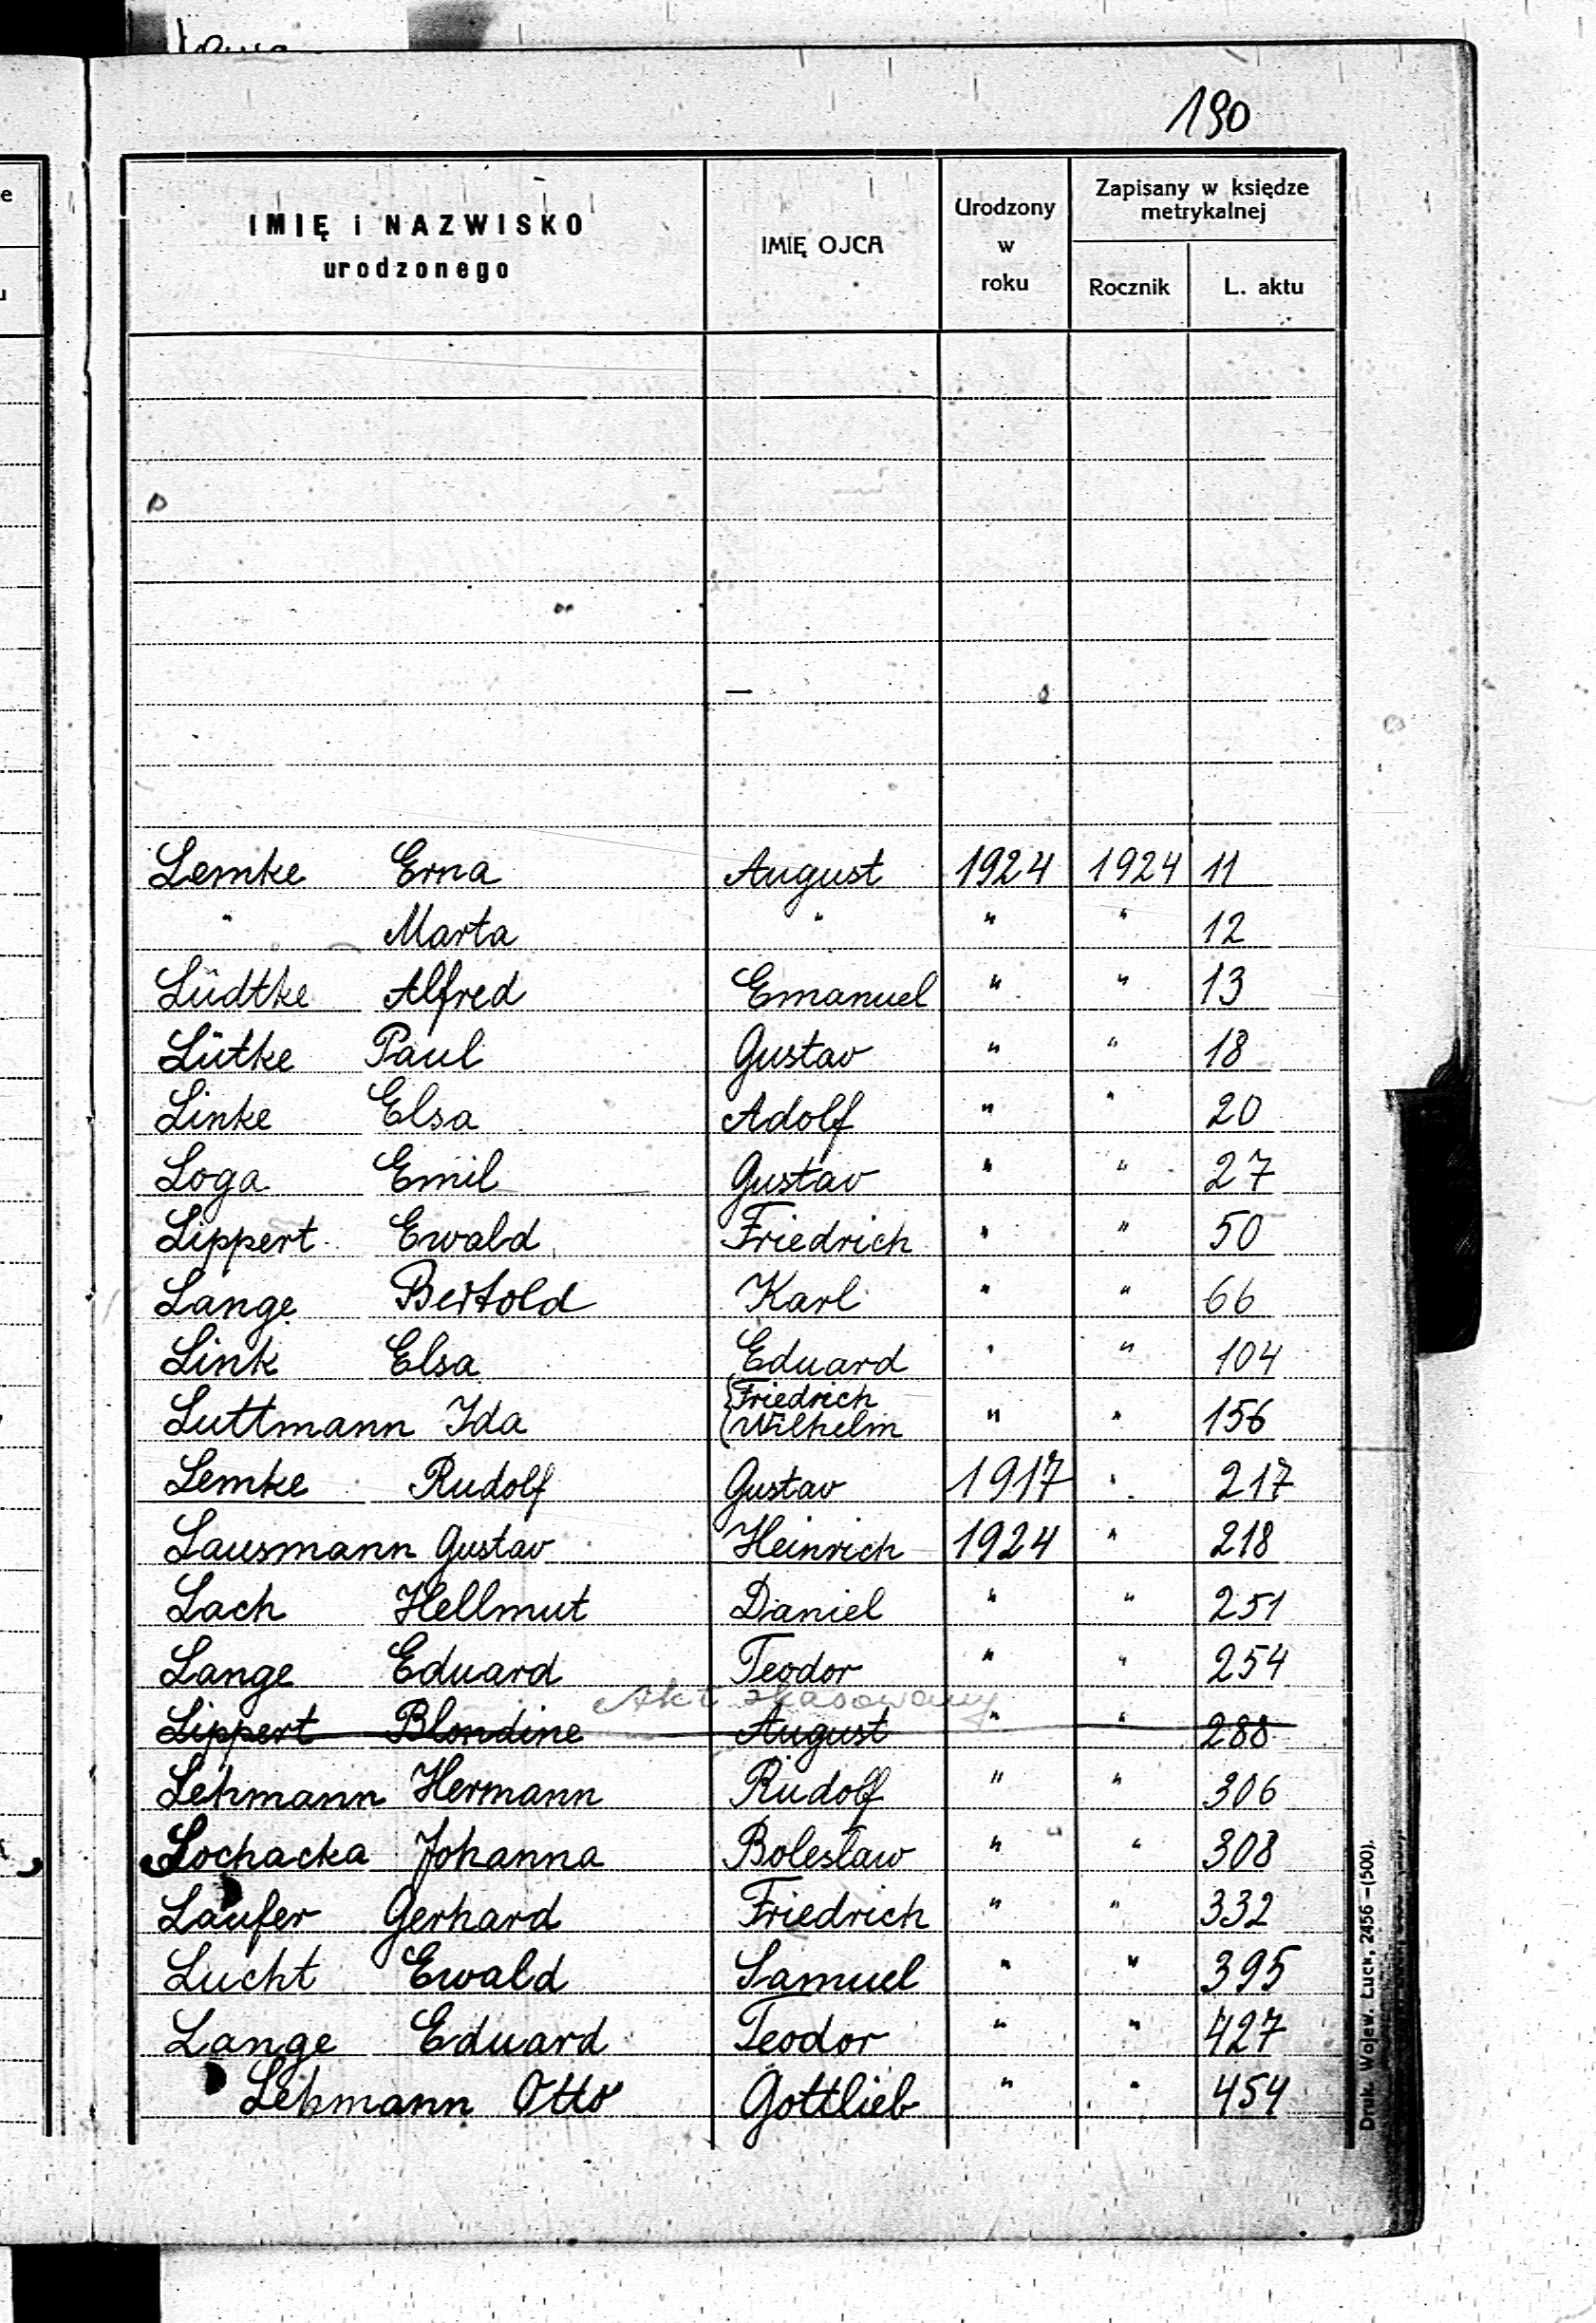 190
IMIĘ i NAZWISKO urodzonego
IMIĘ OJCA
Urodzony w roku
Zapisany w księdze metrykalnej
Rocznik
L. aktu
Lemke Erna August 1924 1924 11
" Marta " " " 12
Lüdtke Alfred Emanuel " " 13
Lütke Paul Gustav " " 18
Linke Elsa Adolf " " 20
Loga Emil Gustav " " 27
Lippert Ewald Friedrich " " 50
Lange Bertold Karl " " 66
Link Elsa Eduard " " 104
Luttmann Ida Friedrich Wilhelm " " 156
Lemke Rudolf Gustav 1917 " 217
Lausmann Gustav Heinrich 1924 " 218
Lach Hellmut Daniel " " 251
Lange Eduard Teodor " " 254
Akt skasowany
Lippert Blondine August " " 288
Lehmann Hermann Rudolf " " 306
Lochacka Johanna Bolesław " " 308
Laufer Gerhard Friedrich " " 332
Lucht Ewald Samuel " " 395
Lange Eduard Teodor " " 427
Lehmann Otto Gottlieb " " 454
Druk. Wojew. Łuck, 2456 –(500).